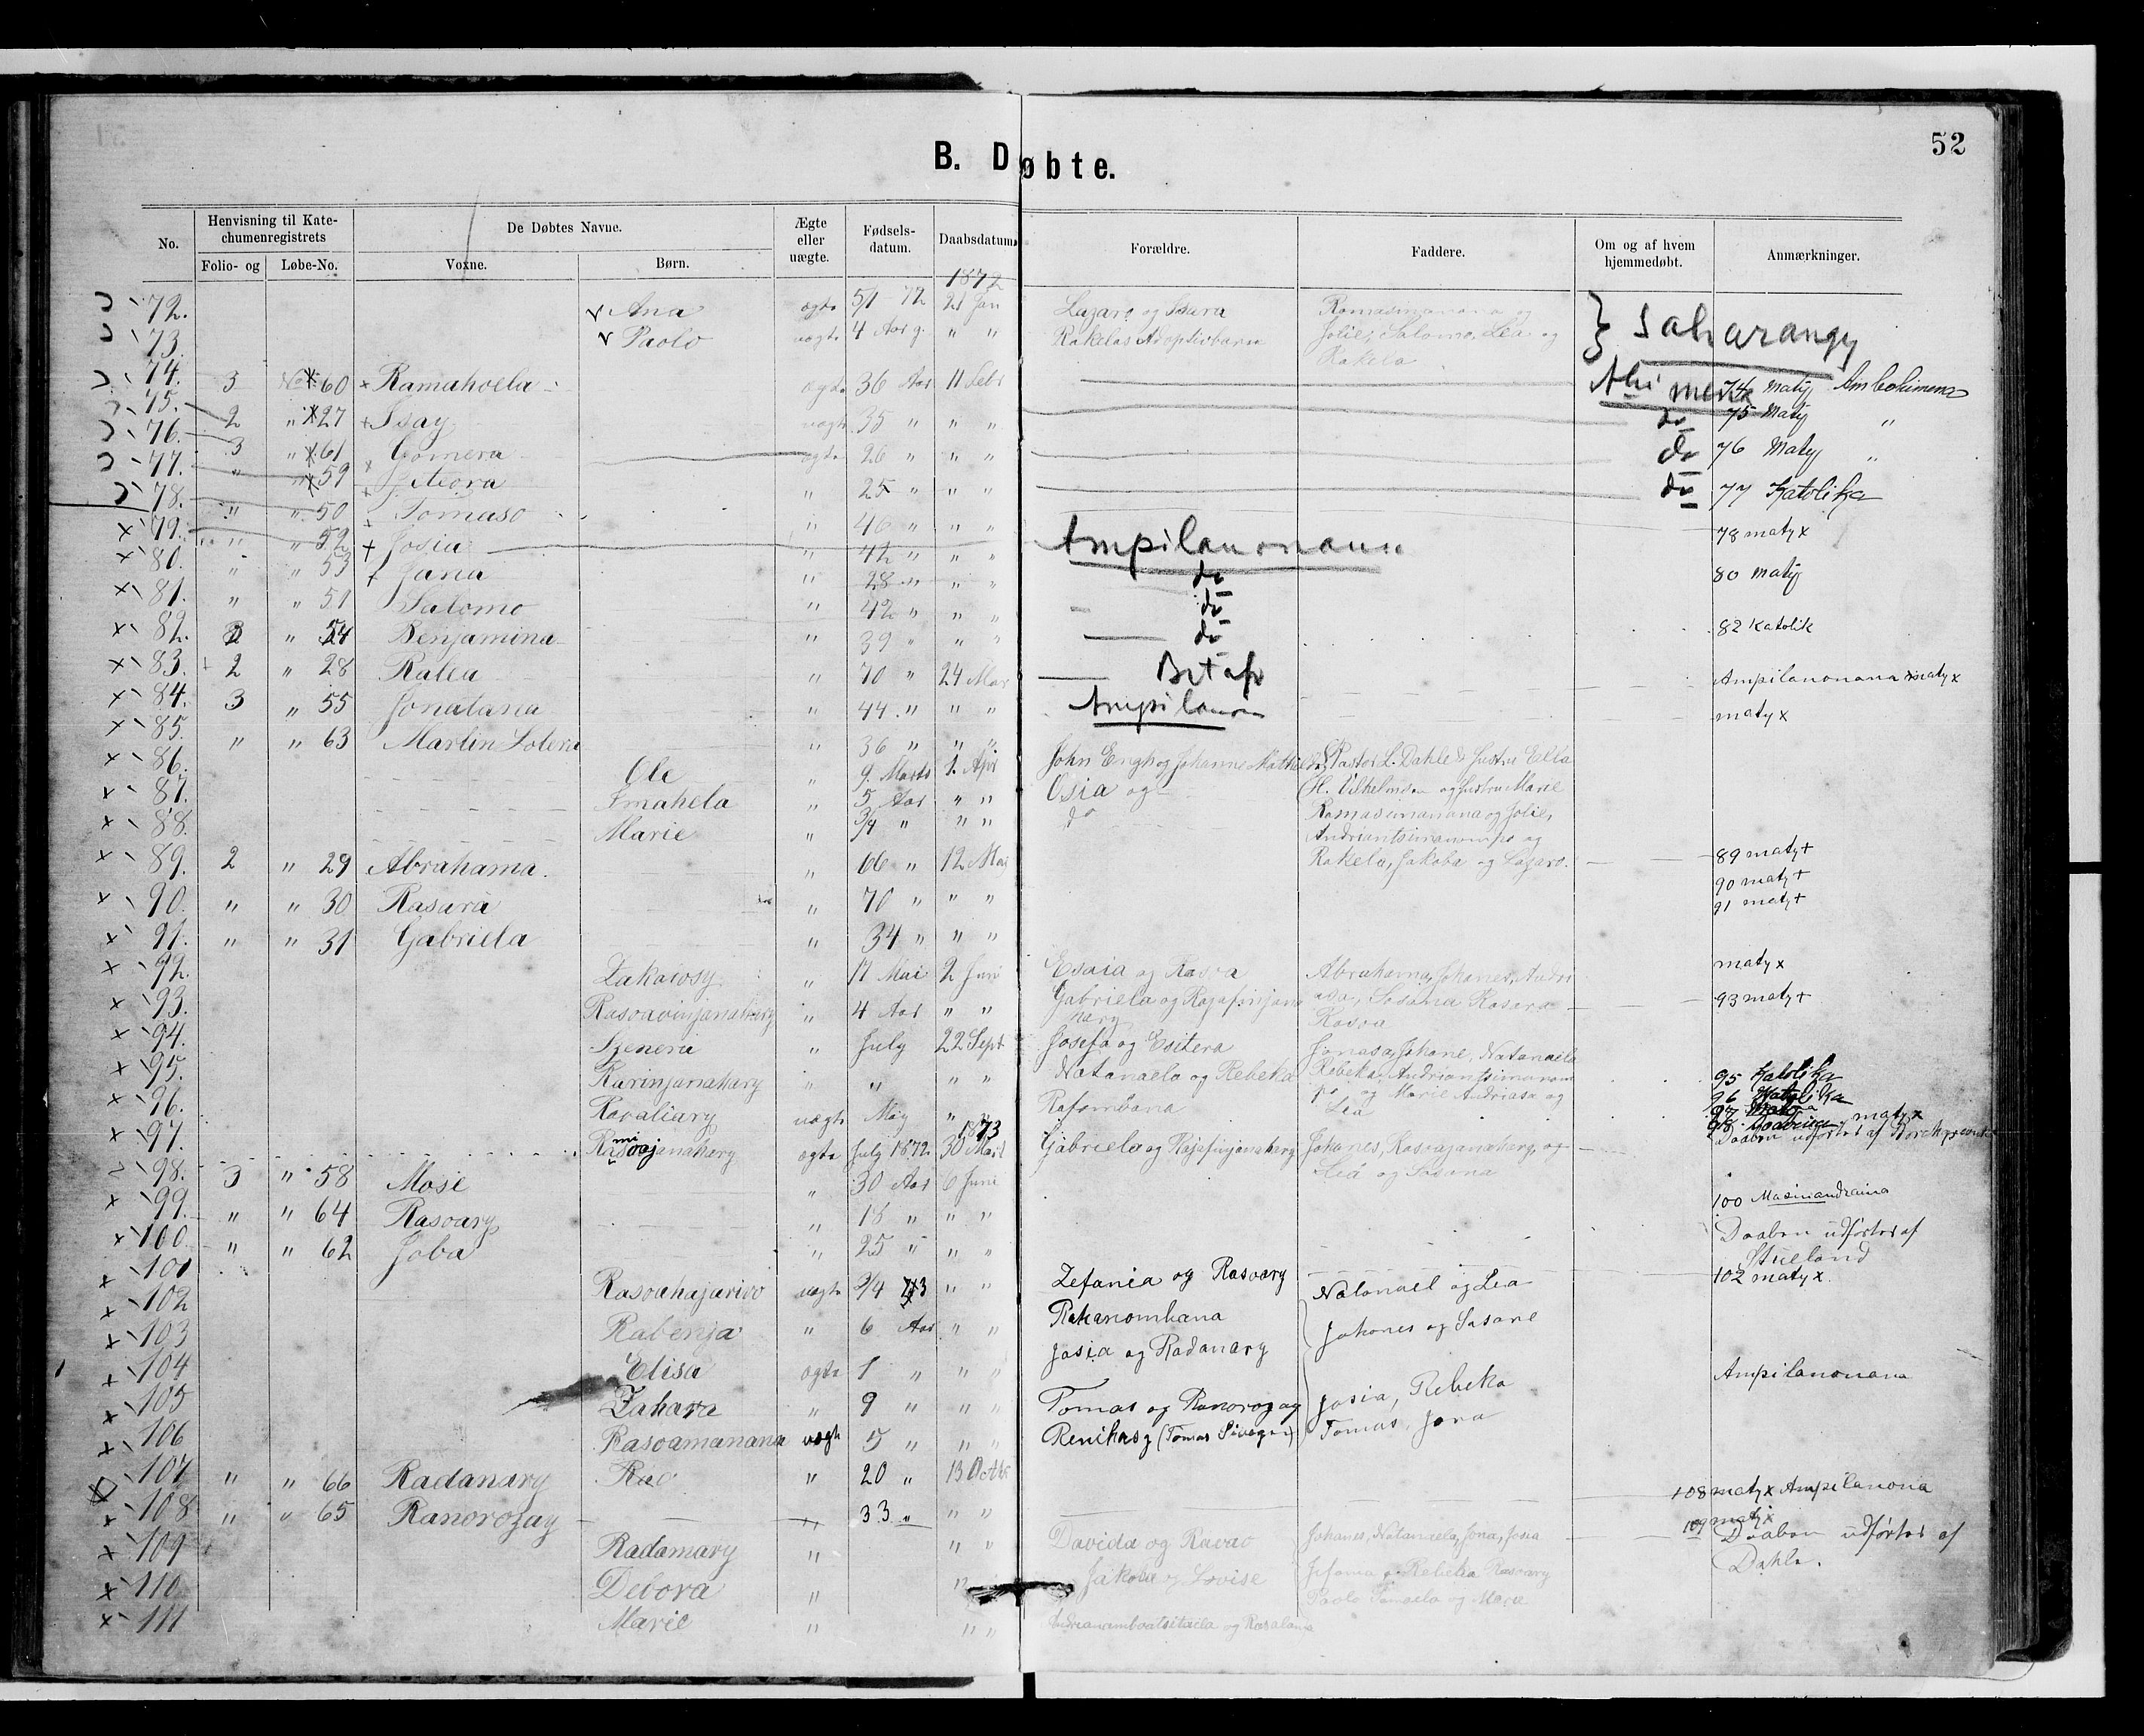 52
B. Døbte.
No. | Henvisning til Kate-chumenregistrets | De Døbtes Navne. | Ægte eller uægte. | Fødsels-datum. | Daabsdatum. | Forældre. | Faddere. | Om og af hvem hjemmedøbt. | Anmærkninger.
Folio- og | Løbe-No. | Voxne. | Børn.
1872
72. Ana ægte 5/1 72 21 Jan Lazaro og Sara } Saharangy
73. Paolo uægte 4 Aar g. " " Rakelas Adoptivbarn Jolie, Salomo, Lea og
Rakela
74. 3 No 60 Ramahoela ægte 36 Aar 11 Febr 74 maty Ambohimena
75. 2 " 27 Isay uægte 35 " " " do 75 Maty "
76. 3 " 61 Gomera ægte 26 " " " do 76 Maty "
77. " " 59 " 25 " " " do 77 Katolika
78. " " 50 Tomaso " 46 " " " 78 maty x
79. " " 52 Josia " 42 " " " Ampilanonana
80. " " 53 Jana " 28 " " " do 80 maty
81. " " 51 Salomo " 42 " " " do
82. " 54 Benjamina " 39 " " " do 82 Katolik
83. 2 " 28 Ralea " 70 " 24 Mar Betaf Ampilanonana maty x
84. 3 " 55 Jonatana " 44 " " " Ampilanon maty x
85. " " 63 Martin Lotera " 36 " " "
86. Ole " 9. Marts 1. Apr John Engh og Johanne Mathilde Pastor L. Dahle & Hustru Ella
87. Imahela " 5 Aar " " Osia og H. Vilhelmsen og Hustru Marie
88. Marie " 3/4 " " " do Ramasimanana og Jolie,
Andriantsimanompo og
89. 2 " 29 Abrahama. " 66 " 12 Mai Rakela, Jakoba og Lazaro. 89 maty +
90. " " 30 Rasara " 70 " " " 90 maty +
91. " " 31 Gabriela " 34 " " " 91 maty +
92. Zakaiosy " 17 Mai 2 Juni Esaia og Rasoa Abrahama, Johanes, maty x
93. Rasoavinjanahary " 4 Aar " " Gabriela og Rajafinjana Sosana Rasara 93 maty +
nary Rasoa
94. " July 22 Sept Josefa og Esitera Jonasa, Johane, Natanaela
95. Rarinjanahary " " " " Natanaela og Rebeka Rebeka, Andriantsimanom 95 Katolika
96. Ravaliary uægte May " " po og Marie Andriasa og 96 Katolika
Lea
1873
97. janahary ægte July 1872 30 Mart Gabriela og Rajafinjanahary Johanes, Rasoajanahary, og
98. 3 " 58 Mose " 30 Aar 6 Juni Lea og Sosana
99. " " 64 Rasoary " 18 " " " 100 Masinandraina
100. " " 62 Joba " 25 " " " Daaben udførtes af
Stueland
101 Rasoahajarivo uægte " " Zefania og Rasoary Natanael og Lea 102 maty x.
102 Rabenja " 6 Aar " " Rakanomhana Johanes og Susane
103 Elisa ægte 1 " " " Josia og Radanary
104 Zahara " 9 " " " Tomas og Ranorozay Josia, Rebeka Ampilanonana
105 Rasoamanana uægte 5 " " " Tomas, Jona
106
107 " " 66 Radanary " 20 " 13 Octbr 108 maty x Ampilanona
108 " " 65 Ranorozay 33 " " " 109 maty x
109 Radamary " " " Davida og Ravao Johanes, Natanaela, Jona, Josia Daaben udførtes af
110 Debora " " Jakoba og Lovise Rebeka Rasoary Dahle.
Paolo og Marie
111 Marie " " "